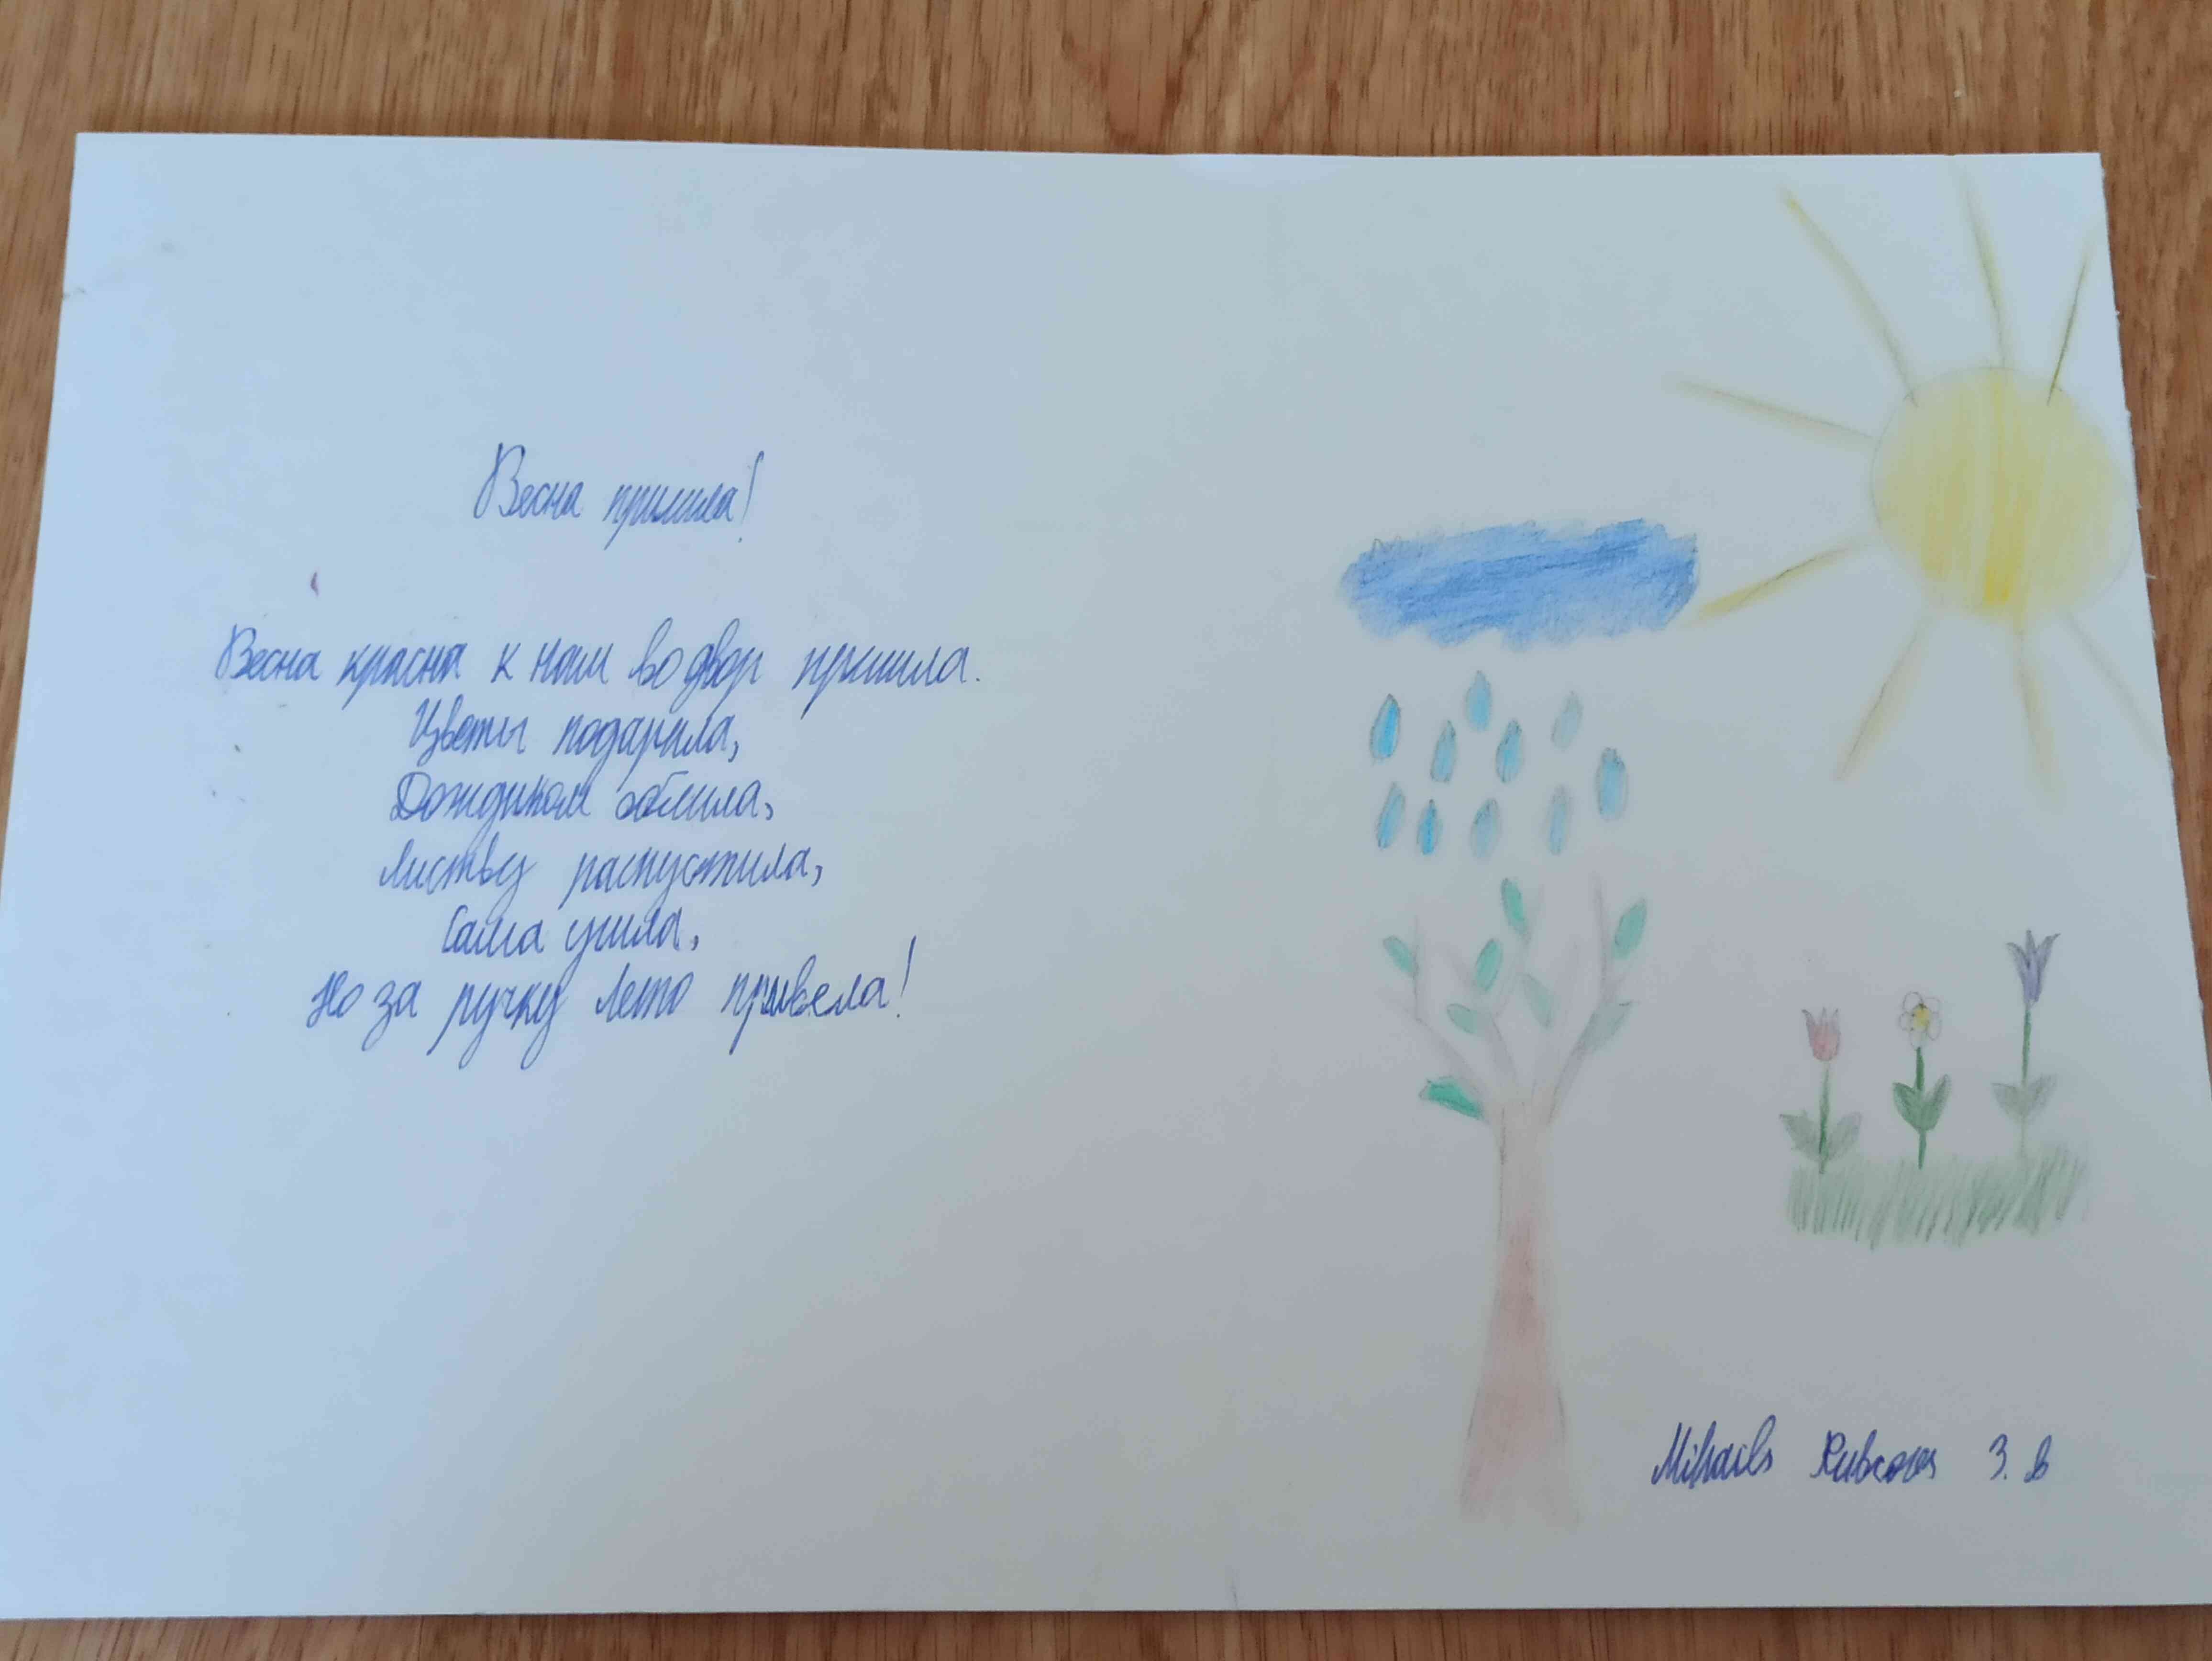 Весна пришла!
Весна красна к нам во двор пришла.
Цветы подарила,
Дождиком облила,
Листву распустила,
Сама ушла,
Но за ручку Лето привела!
Mihails Rubcovs 3. B